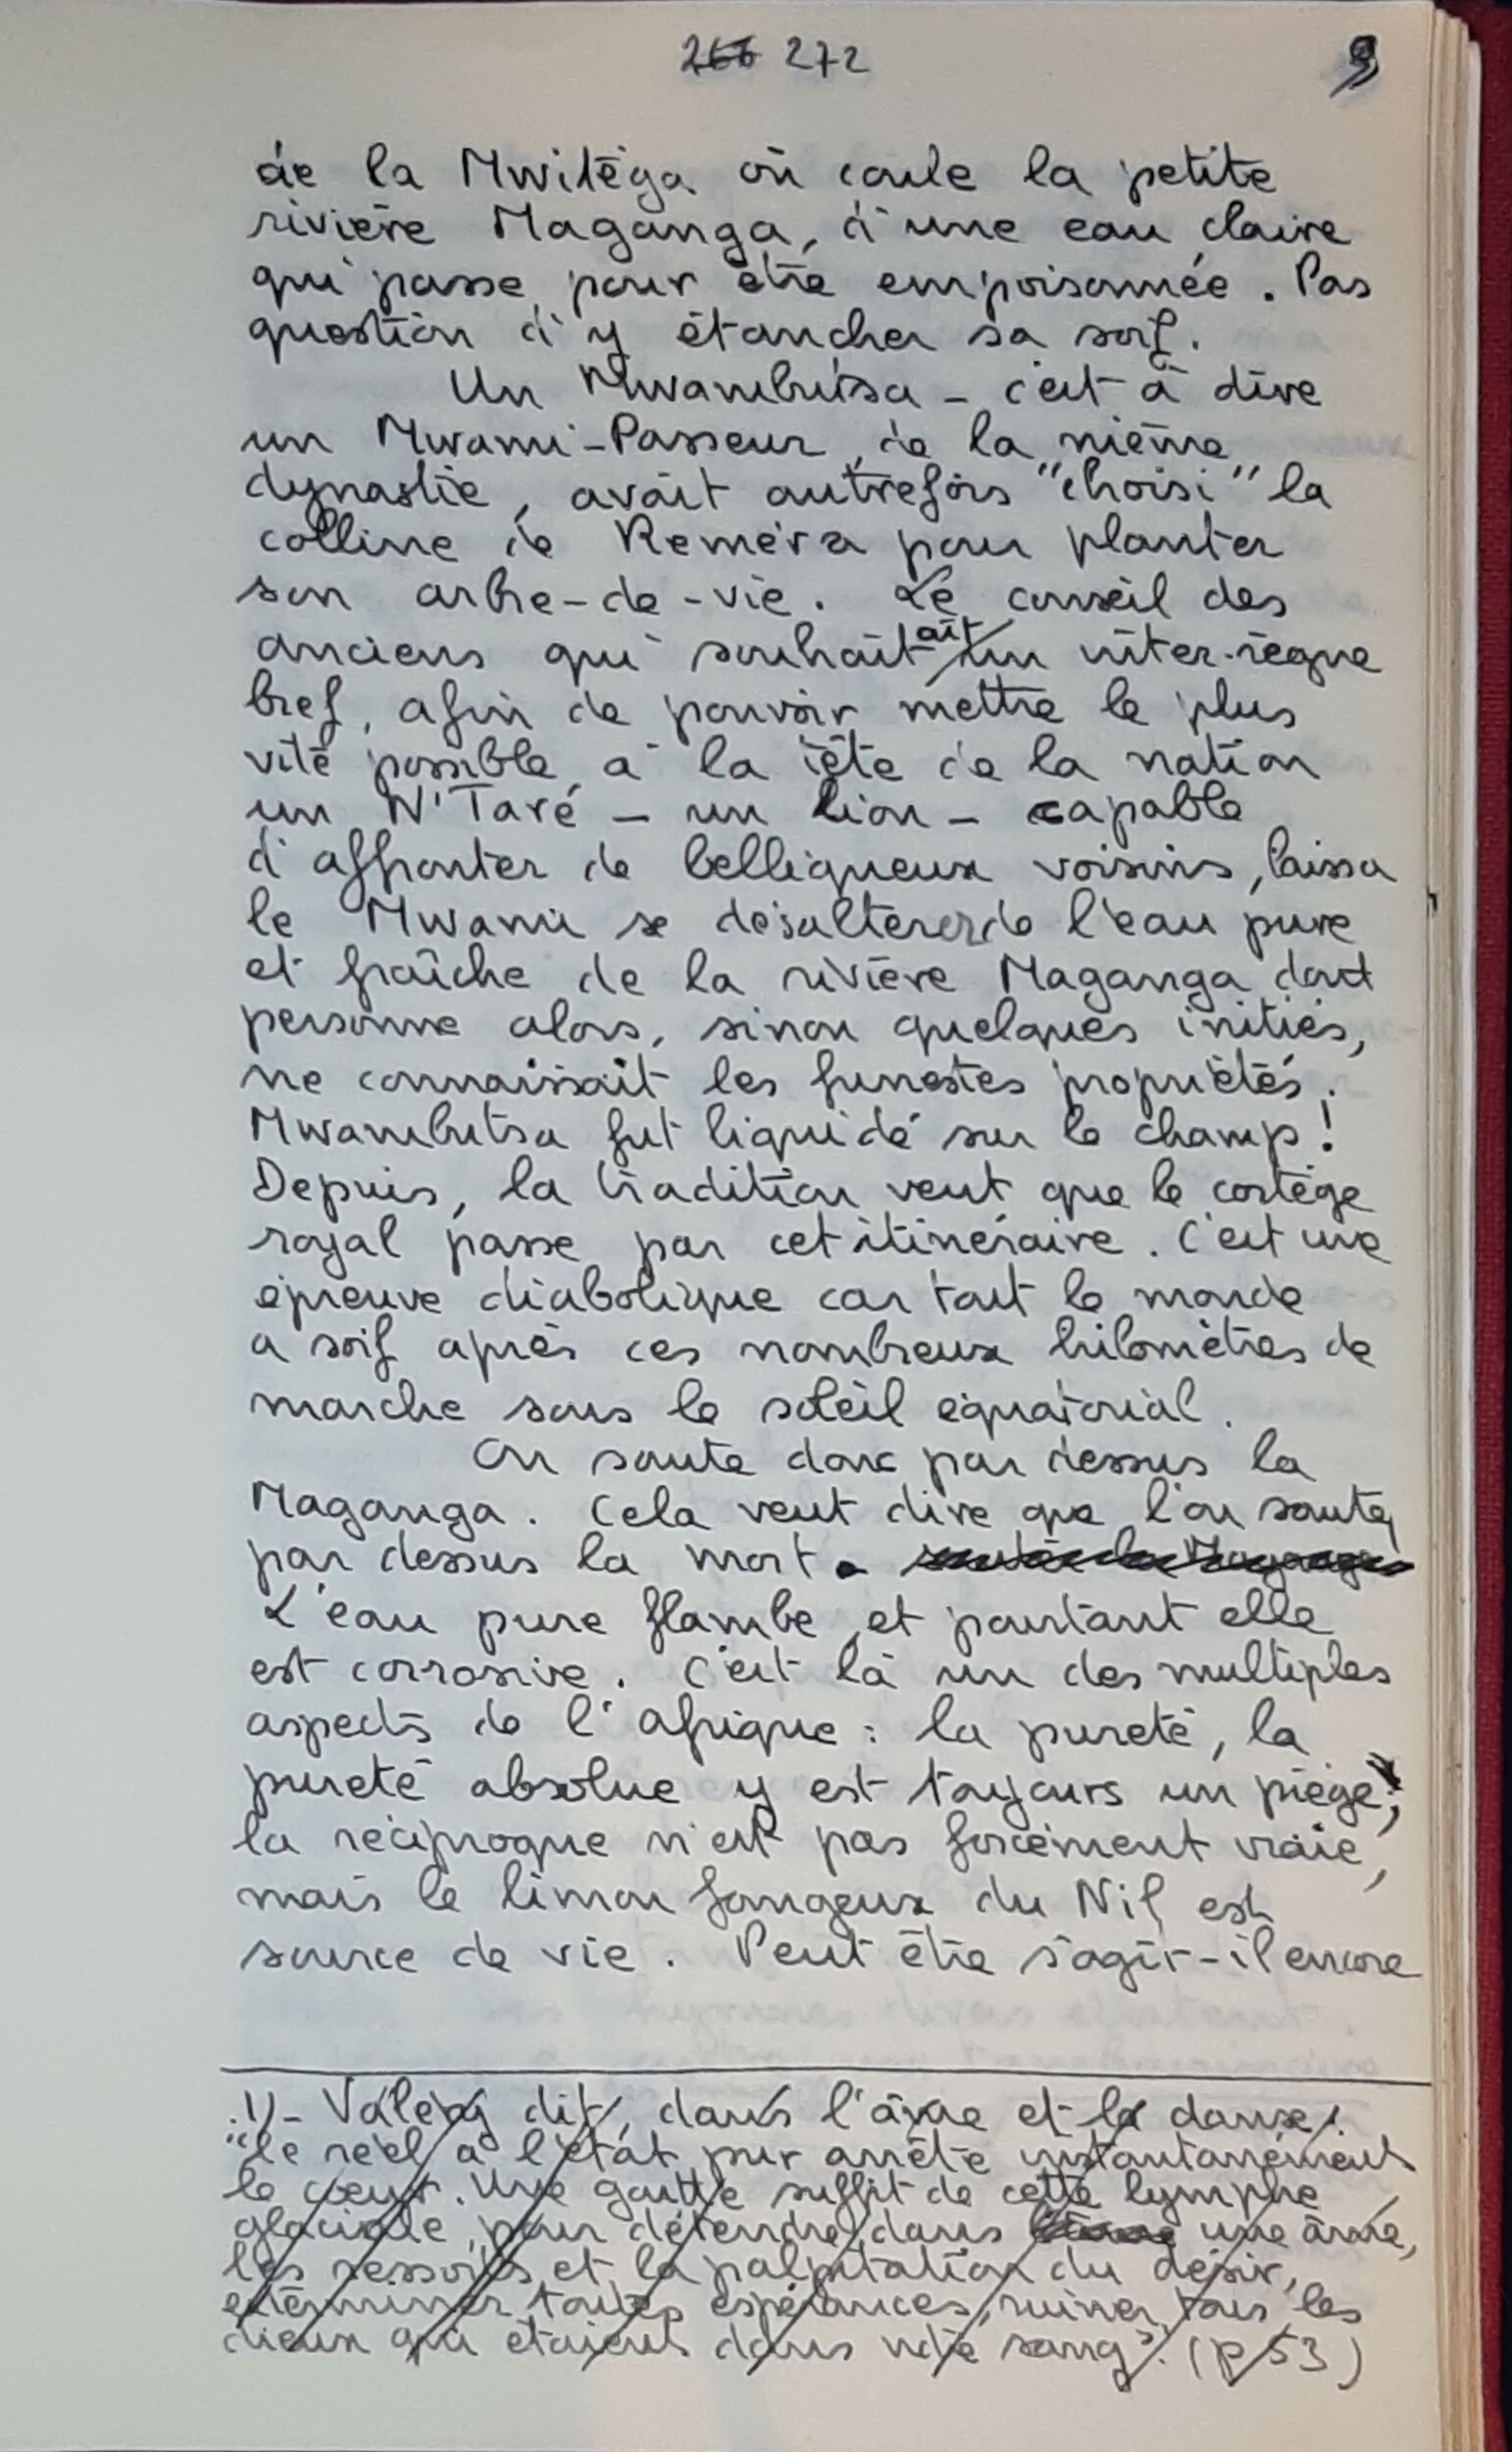 266 272 9
de la Mwitéga où coule la petite
rivière Maganga, d'une eau claire
qui passe pour être empoisonnée. Pas
question d'y étancher sa soif.
Un Mwambutsa - c'est à dire
un Mwami-Passeur, de la même
dynastie, avait autrefois "choisi" la
colline de Reméra pour planter
son arbre-de-vie. Le conseil des
anciens qui souhaitait un inter-règne
bref, afin de pouvoir mettre le plus
vite possible à la tête de la nation
un N'Taré - un lion - capable
d'affronter de belliqueux voisins, laissa
le Mwami se désalterer de l'eau pure
et fraîche de la rivière Maganga dont
personne alors, sinon quelques initiés,
ne connaissait les funestes propriétés.
Mwambutsa fut liquidé sur le champ!
Depuis, la tradition veut que le cortège
royal passe par cet itinéraire. C'est une
épreuve diabolique car tout le monde
a soif après ces nombreux kilomètres de
marche sous le soleil équatorial.
On saute donc par dessus la
Maganga. Cela veut dire que l'on saute
par dessus la mort.
L'eau pure flambe, et pourtant elle
est corrosive. C'est là un des multiples
aspects de l'Afrique : la pureté, la
pureté absolue y est toujours un piège;
la réciproque n'est pas forcément vraie,
mais le limon fangeux du Nil est
source de vie. Peut être s'agit-il encore
.1)- Valéry dit, dans l'âme et la danse:
"le réel à l'état pur arrête instantanément
le coeur. Une goutte suffit de cette lymphe
glaciale, pour détendre dans une âme,
les ressorts et la palpitation du désir,
exterminer toutes espérances, ruiner tous les
dieux qui étaient dans notre sang". (p 53)